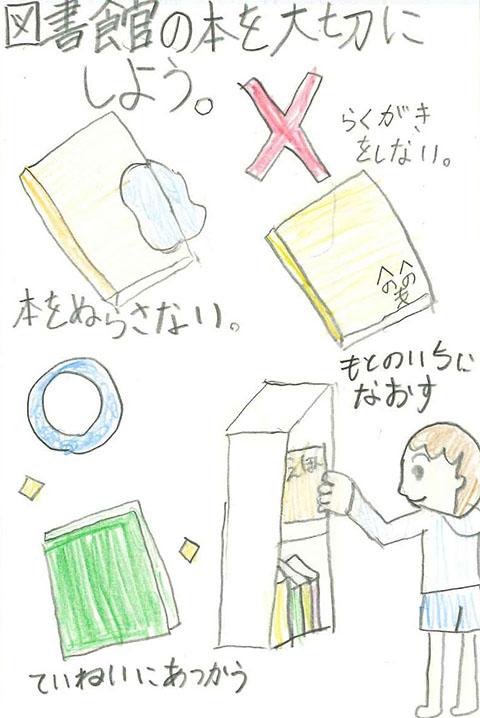 図書館の本を大切に
しよう。
らくがき
をしない。
本をぬらさない。
もとのいちに
なおす
えほん
ていねいにあつかう